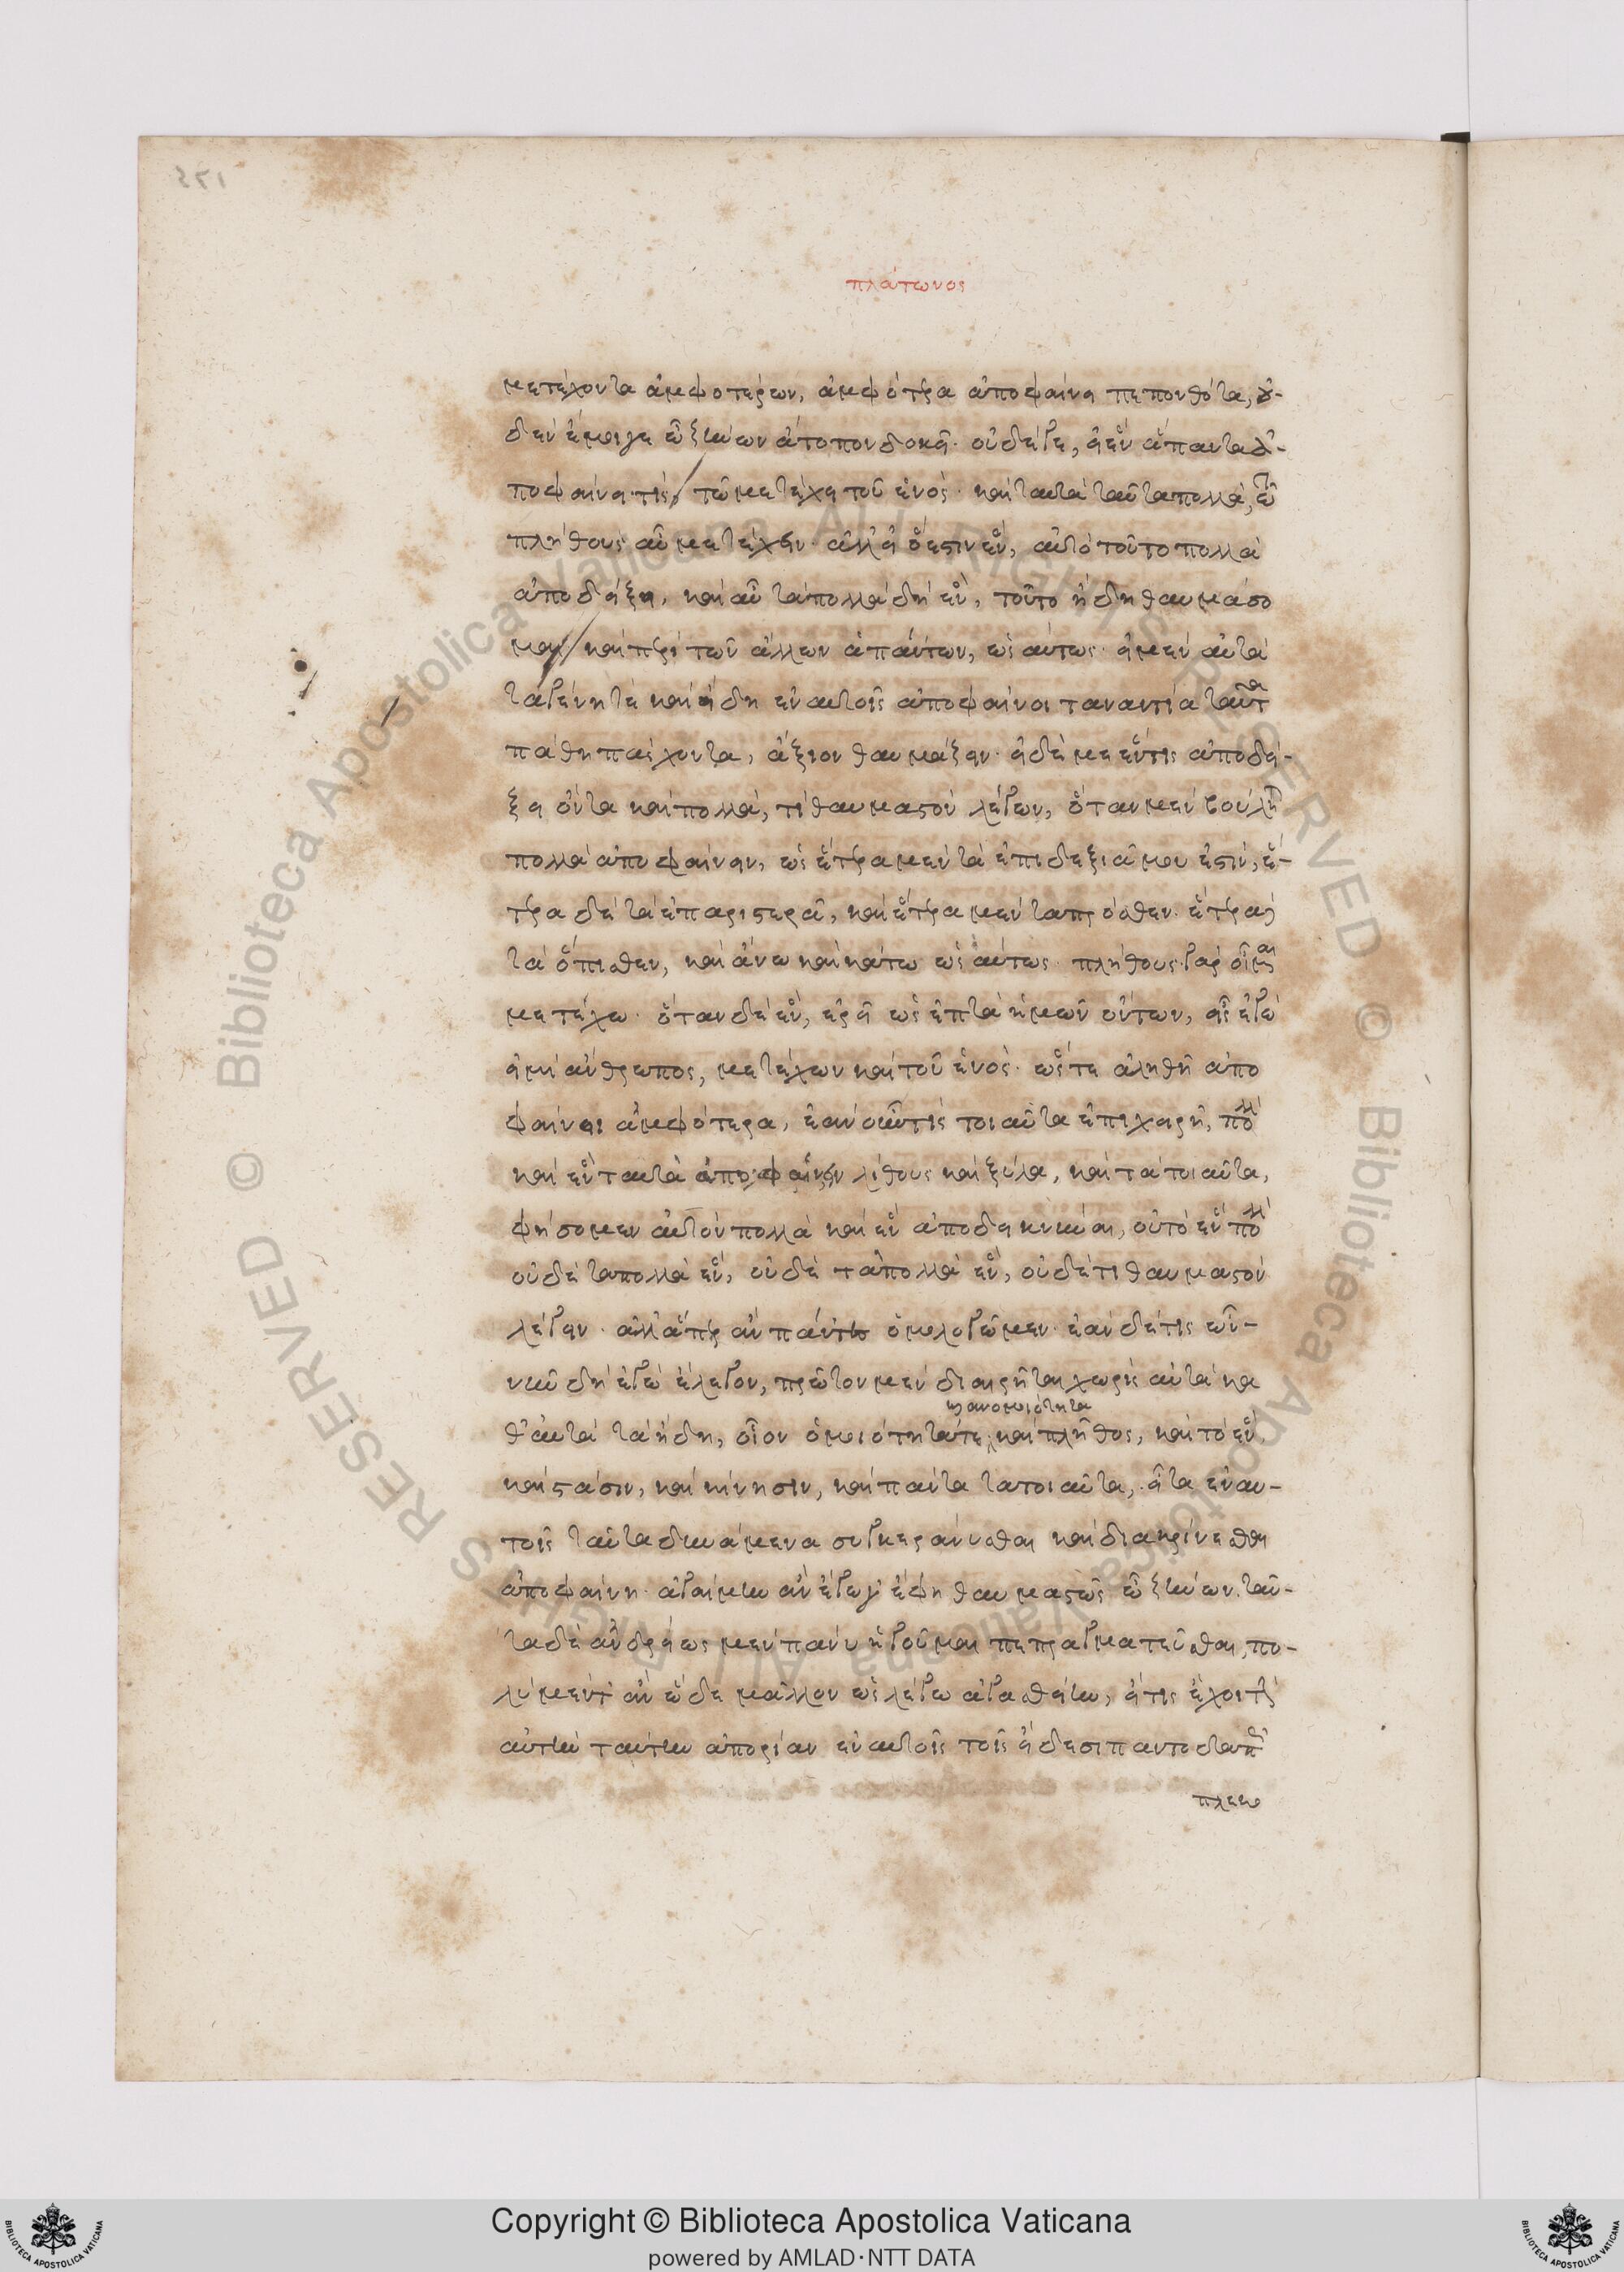 πλάτωνος
μετέχοντα ἀμφοτέρων, ἀμφότερα ἀποφαίνει πεπονθότα, οὐ-
δὲν ἔμοιγε ὦ ζήνων ἄτοπον δοκεῖ· οὐδέ γε, εἰ ἓν ἅπαντα ἀ-
ποφαίνει τις, τῷ μετέχειν τοῦ ἑνὸς· καὶ ταυτὰ ταῦτα πολλὰ, τῷ
πλήθους αὖ μετέχειν· ἀλλ' εἰ ὅ ἐστιν ἓν, αὐτὸ τοῦτο πολλὰ
ἀποδείξει, καὶ αὖ τὰ πολλὰ δὴ ἓν, τοῦτο ἤδη θαυμάσο
μαι καὶ περὶ τῶν ἄλλων ἁπάντων, ὡς αύτως· εἰ μὲν αὐτὰ
τὰ γένη τὲ καὶ εἴδη ἐν αὐτοῖς ἀποφαίνοι ταναντία ταῦτα
πάθη πάσχοντα, ἄξιον θαυμάζειν· εἰ δέ με ἕν τις ἀποδεί-
ξει ὄντα καὶ πολλὰ, τί θαυμαστὸν λέγων, ὅταν μὲν βούληται
πολλὰ ἀποφαίνειν, ὡς ἕτερα μὲν τὰ ἐπιδεξιά μου ἐστίν, ἕ-
τερα δὲ τὰ ἐπαριστερὰ, καὶ ἕτερα μὲν τὰ πρόσθεν· ἕτερα δὲ
τὰ ὄπισθεν, καὶ ἄνω καὶ κάτω ὡς αύτως· πλήθους γὰρ οἶμαι
μετέχω· ὅταν δὲ ἓν, ἐρεῖ ὡς ἑπτὰ ἡμῶν ὄντων, εἷς ἐγώ
εἰμι ἄνθρωπος, μετέχων καὶ τοῦ ἑνός· ὥστε ἀληθῆ ἀπο
φαίνει ἀμφότερα, ἐὰν οὖν τὶς τοιαῦτα ἐπιχειρῇ, πολλὰ
καὶ ἓν ταυτὰ ἀποφαίνειν λίθους καὶ ξύλα, καὶ τὰ τοιαῦτα,
φήσομεν αὐτὸν πολλὰ καὶ ἓν ἀποδεικνύναι, οὐ τὸ ἓν πολλὰ
οὐδὲ τὰ πολλὰ ἓν, οὐδὲ τὰ πολλὰ ἓν, οὐδέ τι θαυμαστὸν
λέγειν· ἀλλ' ἅπερ ἂν πάντες ὁμολογῶμεν· ἐὰν δέ τις ὧν-
νῦν δὴ ἐγὼ ἔλεγον, πρῶτον μὲν διαιρῆται χωρὶς αὐτὰ κα
καὶ ἀνομοιότητα
θ' αὑτὰ τὰ ἤδη, οἷον ὁμοιότητά τε, καὶ πλῆθος, καὶ τὸ ἓν
καὶ στάσιν, καὶ κίνησιν, καὶ πάντα τὰ τοιαῦτα, εἶτα ἐν αυ-
τοῖς ταῦτα δυνάμενα συγκεράννυσθαι καὶ διακρίνεσθαι
ἀποφαίνη· ἀγαίμην ἂν ἔγωγ' ἔφη θαυμαστῶς ὦ ζήνων. ταῦ-
τα δὲ ἀνδρείως μὲν πάνυ ἡγοῦμαι πεπραγματεῦσθαι, πο-
λὺ μέντ' ἂν ὧδε μᾶλλον ὡς λέγω ἀγασθείην, εἴ τις ἔχοι τὴν
αὐτὴν ταύτην ἀπορίαν ἐν αὐτοῖς τοῖς εἴδεσι παντοδαπῶς
πλεκο